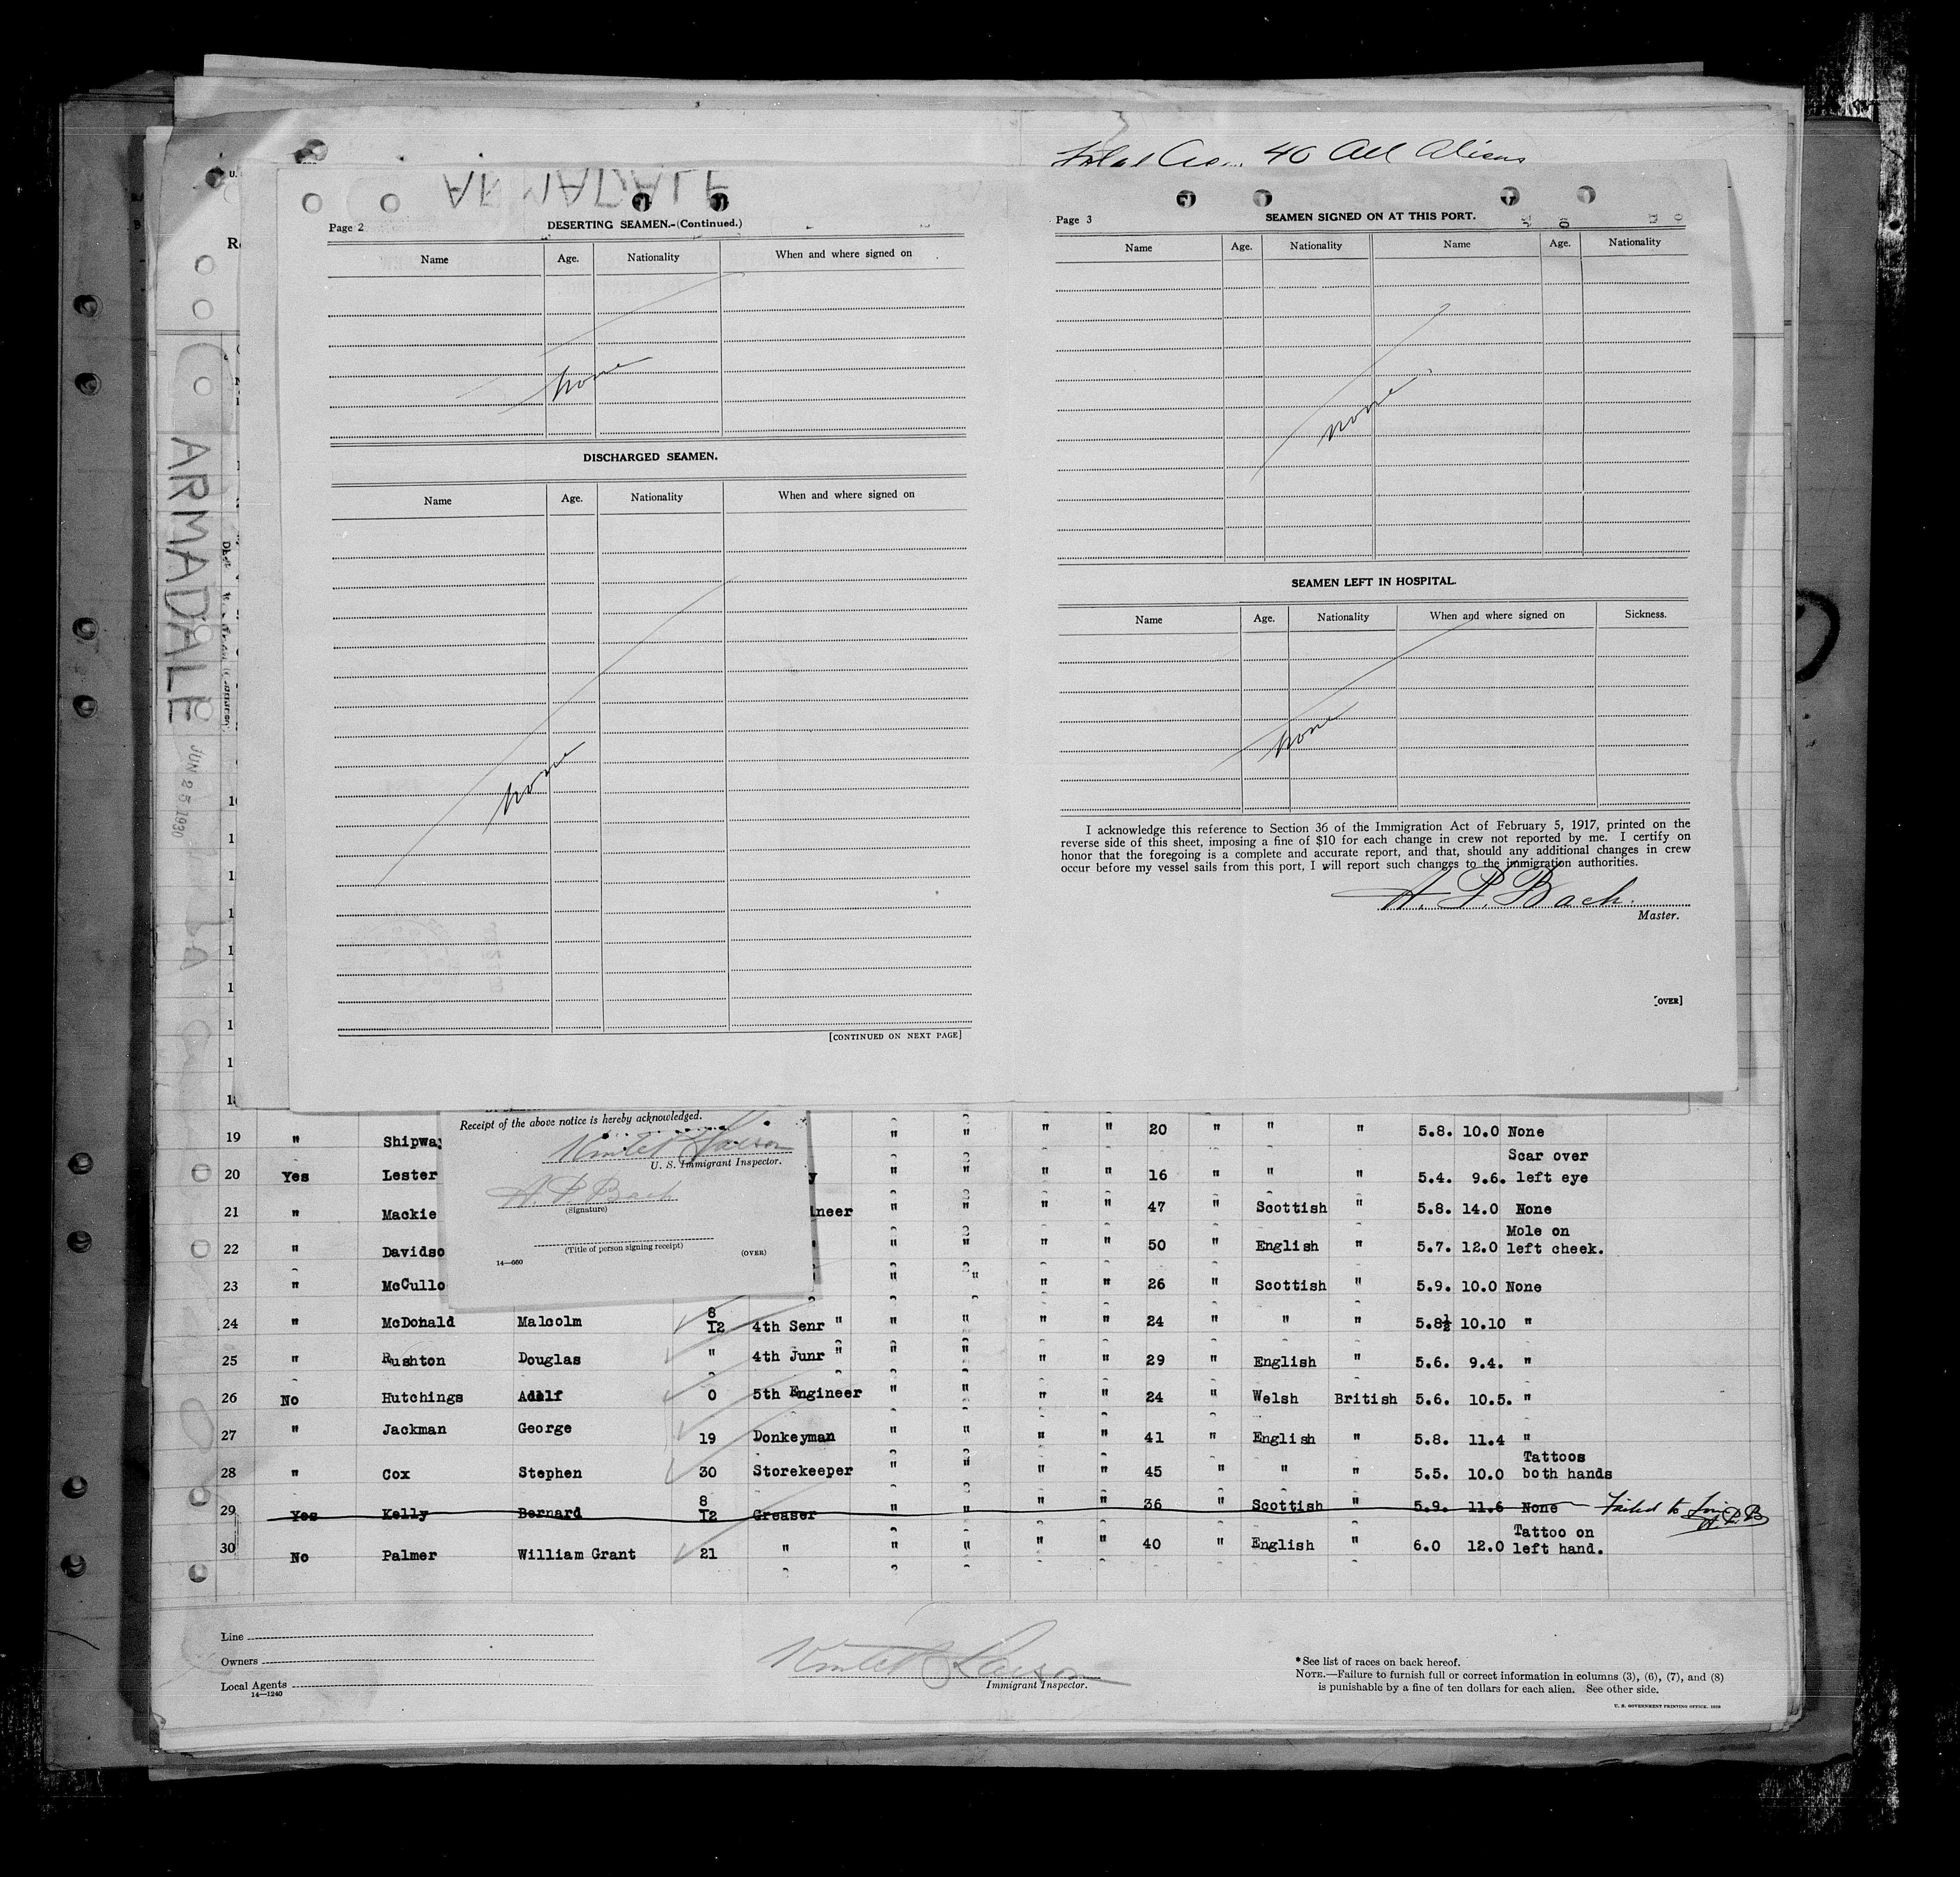 40 All Aliens
ARMADALE
Page 2
DESERTING SEAMEN.-(Continued.)
Name Age. Nationality When and where signed on
none
DISCHARGED SEAMEN.
Name Age. Nationality When and where signed on
none
[CONTINUED ON NEXT PAGE]
Page 3
SEAMEN SIGNED ON AT THIS PORT.
Name Age. Nationality Name Age. Nationality
none
SEAMEN LEFT IN HOSPITAL.
Name Age. Nationality When and where signed on Sickness.
none
I acknowledge this reference to Section 36 of the Immigration Act of February 5, 1917, printed on the
reverse side of this sheet, imposing a fine of $10 for each change in crew not reported by me. I certify on
honor that the foregoing is a complete and accurate report, and that, should any additional changes in crew
occur before my vessel sails from this port, I will report such changes to the immigration authorities.
A. P. Bach.
Master.
[OVER]
ARMADALE
JUN 25 1930
Receipt of the above notice is hereby acknowledged.
U. S. Immigrant Inspector.
A. P. Bach
(Signature)
(Title of person signing receipt)
(OVER)
14—660
19 " Shipway " " " " 20 " " " 5.8. 10.0 None
20 Yes Lester " " " " 16 " " " 5.4. 9.6. Scar over
left eye
21 " Mackie ineer " " " " 47 " Scottish " 5.8. 14.0 None
22 " Davidso " " " " 50 " English " 5.7. 12.0 Mole on
left cheek.
23 " McCullo " " " " 26 " Scottish " 5.9. 10.0 None
24 " McDonald Malcolm 8/12 4th Senr " " " " " 24 " " " 5.8½ 10.10 "
25 " Rushton Douglas " 4th Junr " " " " " 29 " English " 5.6. 9.4. "
26 No Hutchings Adolf 0 5th Engineer " " " " 24 " Welsh British 5.6. 10.5. "
27 " Jackman George 19 Donkeyman " " " " 41 " English " 5.8. 11.4 "
28 " Cox Stephen 30 Storekeeper " " " " 45 " " " 5.5. 10.0 Tattoos
both hands
29 Yes Kelly Bernard 8/12 Greaser " " " " 36 " Scottish " 5.9. 11.6 None Failed to Join
A.P.B
30 No Palmer William Grant 21 " " " " " 40 " English " 6.0 12.0 Tattoo on
left hand.
Line
Owners
Local Agents
14—1240
Immigrant Inspector.
*See list of races on back hereof.
NOTE.—Failure to furnish full or correct information in columns (3), (6), (7), and (8)
is punishable by a fine of ten dollars for each alien. See other side.
U. S. GOVERNMENT PRINTING OFFICE. 1929